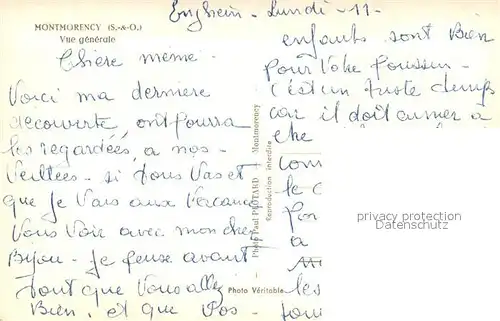 MONTMORENCY (S.-&-O.)
Vue générale
Enghein - Lundi - 11 -
Chère mémé -
Voici ma derniere
decouverte, ont pourra
les regardées à nos -
Veillées - si tous Vas et
que je Vais aux Vacances
Vous Voir avec mon cher
Bijou - Je pense avant
tout que Vous allez
Bien, et que Vos -
enfants sont Bien
pour Votre Poussin -
c'est un juste temps
car il doit arriver à
che
com
le c
à
les
Photo Paul PROTARD - Montmorency
Reproduction interdite
Photo Véritable
privacy protection
Datenschutz